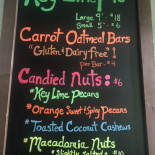 Key Lime Pie
Large 9" - $18
Small 5" - $6
Carrot Oatmeal Bars
"Gluten & Dairy-free"!
per Bar - $4
Candied Nuts: $6
Key Lime Pecans
*Orange Sweet & Spicy Pecans
*Toasted Coconut Cashews
*Macadamia Nuts
*Slightly salted